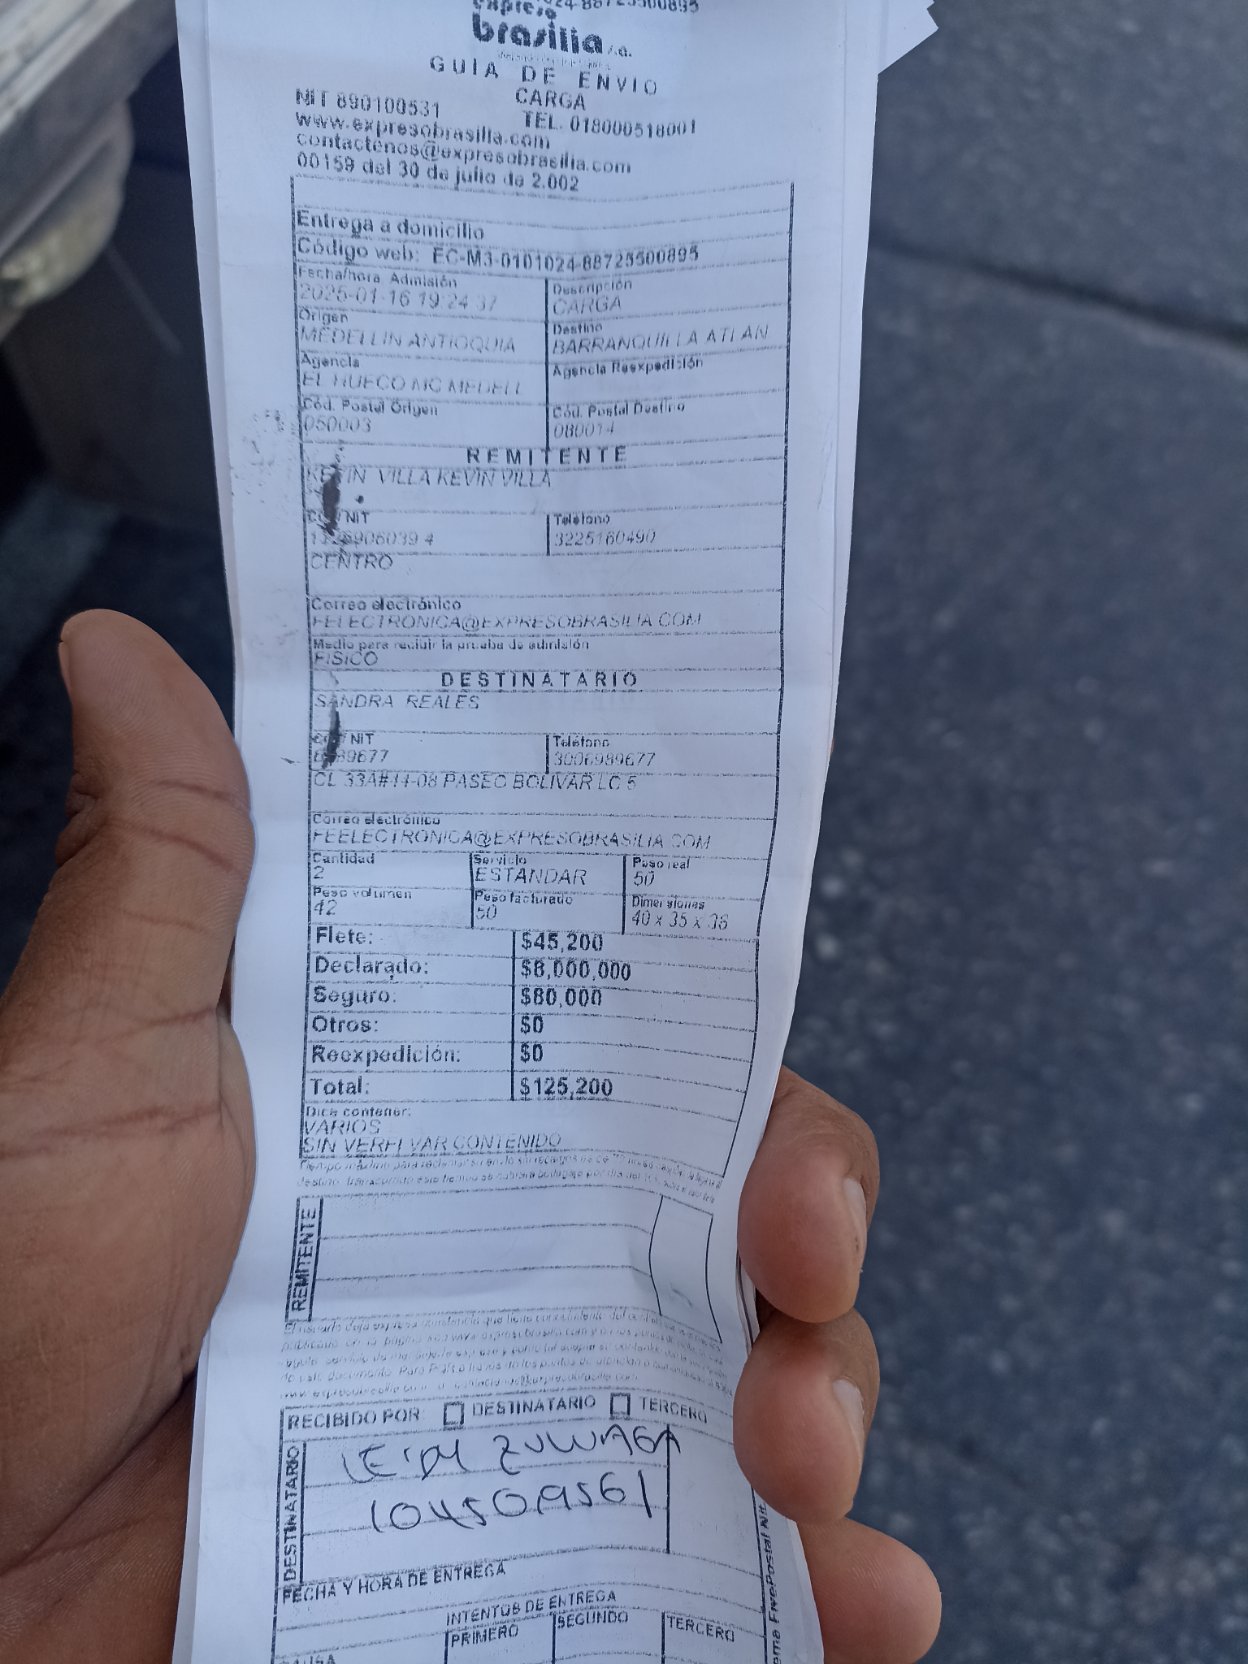 expreso
brasilia s.a.
GUIA DE ENVIO
CARGA
NIT 890100531
TEL. 018000518001
www.expresobrasilia.com
contactenos@expresobrasilia.com
00159 del 30 de julio de 2.002
Entrega a domicilio
Código web: EC-M3-0101024-88725500895
Fecha/hora Admisión
2025-01-16 19:24:37
Descripción
CARGA
Origen
MEDELLIN ANTIOQUIA
Destino
BARRANQUILLA ATLAN
Agencia
EL HUECO MC MEDELL
Agencia Reexpedición
Cód. Postal Origen
050003
Cód. Postal Destino
080014
REMITENTE
KEVIN VILLA KEVIN VILLA
NIT
Teléfono
3225160490
CENTRO
Correo electrónico
FELECTRONICA@EXPRESOBRASILIA.COM
Medio para recibir la prueba de admisión
FISICO
DESTINATARIO
SANDRA REALES
NIT
Teléfono
3006989677
CL 33A#14-08 PASEO BOLIVAR LC 5
Correo electrónico
FEELECTRONICA@EXPRESOBRASILIA.COM
Cantidad
2
Servicio
ESTANDAR
Peso real
50
Peso volumen
42
Peso facturado
50
Dimensiones
40 x 35 x 36
Flete: $45,200
Declarado: $8,000,000
Seguro: $80,000
Otros: $0
Reexpedición: $0
Total: $125,200
Dice contener:
VARIOS
SIN VERFI VAR CONTENIDO
REMITENTE
RECIBIDO POR: DESTINATARIO TERCERO
DESTINATARIO
LEIDY ZULUAGA
FECHA Y HORA DE ENTREGA
INTENTOS DE ENTREGA
PRIMERO SEGUNDO TERCERO